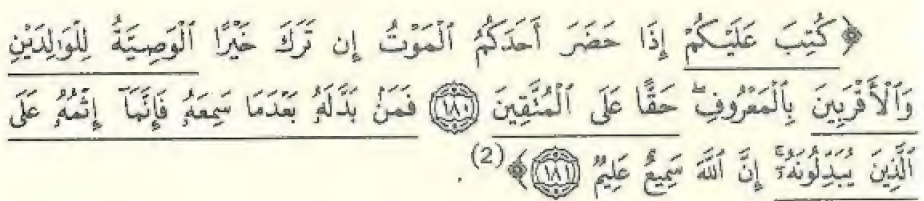 ﴿ كُتِبَ عَلَيْكُمْ إِذَا حَضَرَ أَحَدَكُمُ ٱلْمَوْتُ إِن تَرَكَ خَيْرًا ٱلْوَصِيَّةُ لِلْوَٰلِدَيْنِ
وَٱلْأَقْرَبِينَ بِٱلْمَعْرُوفِ ۖ حَقًّا عَلَى ٱلْمُتَّقِينَ ۝١٨٠ فَمَنۢ بَدَّلَهُۥ بَعْدَمَا سَمِعَهُۥ فَإِنَّمَآ إِثْمُهُۥ عَلَى
ٱلَّذِينَ يُبَدِّلُونَهُۥٓ ۚ إِنَّ ٱللَّهَ سَمِيعٌ عَلِيمٌ ۝١٨١ ﴾(2) .